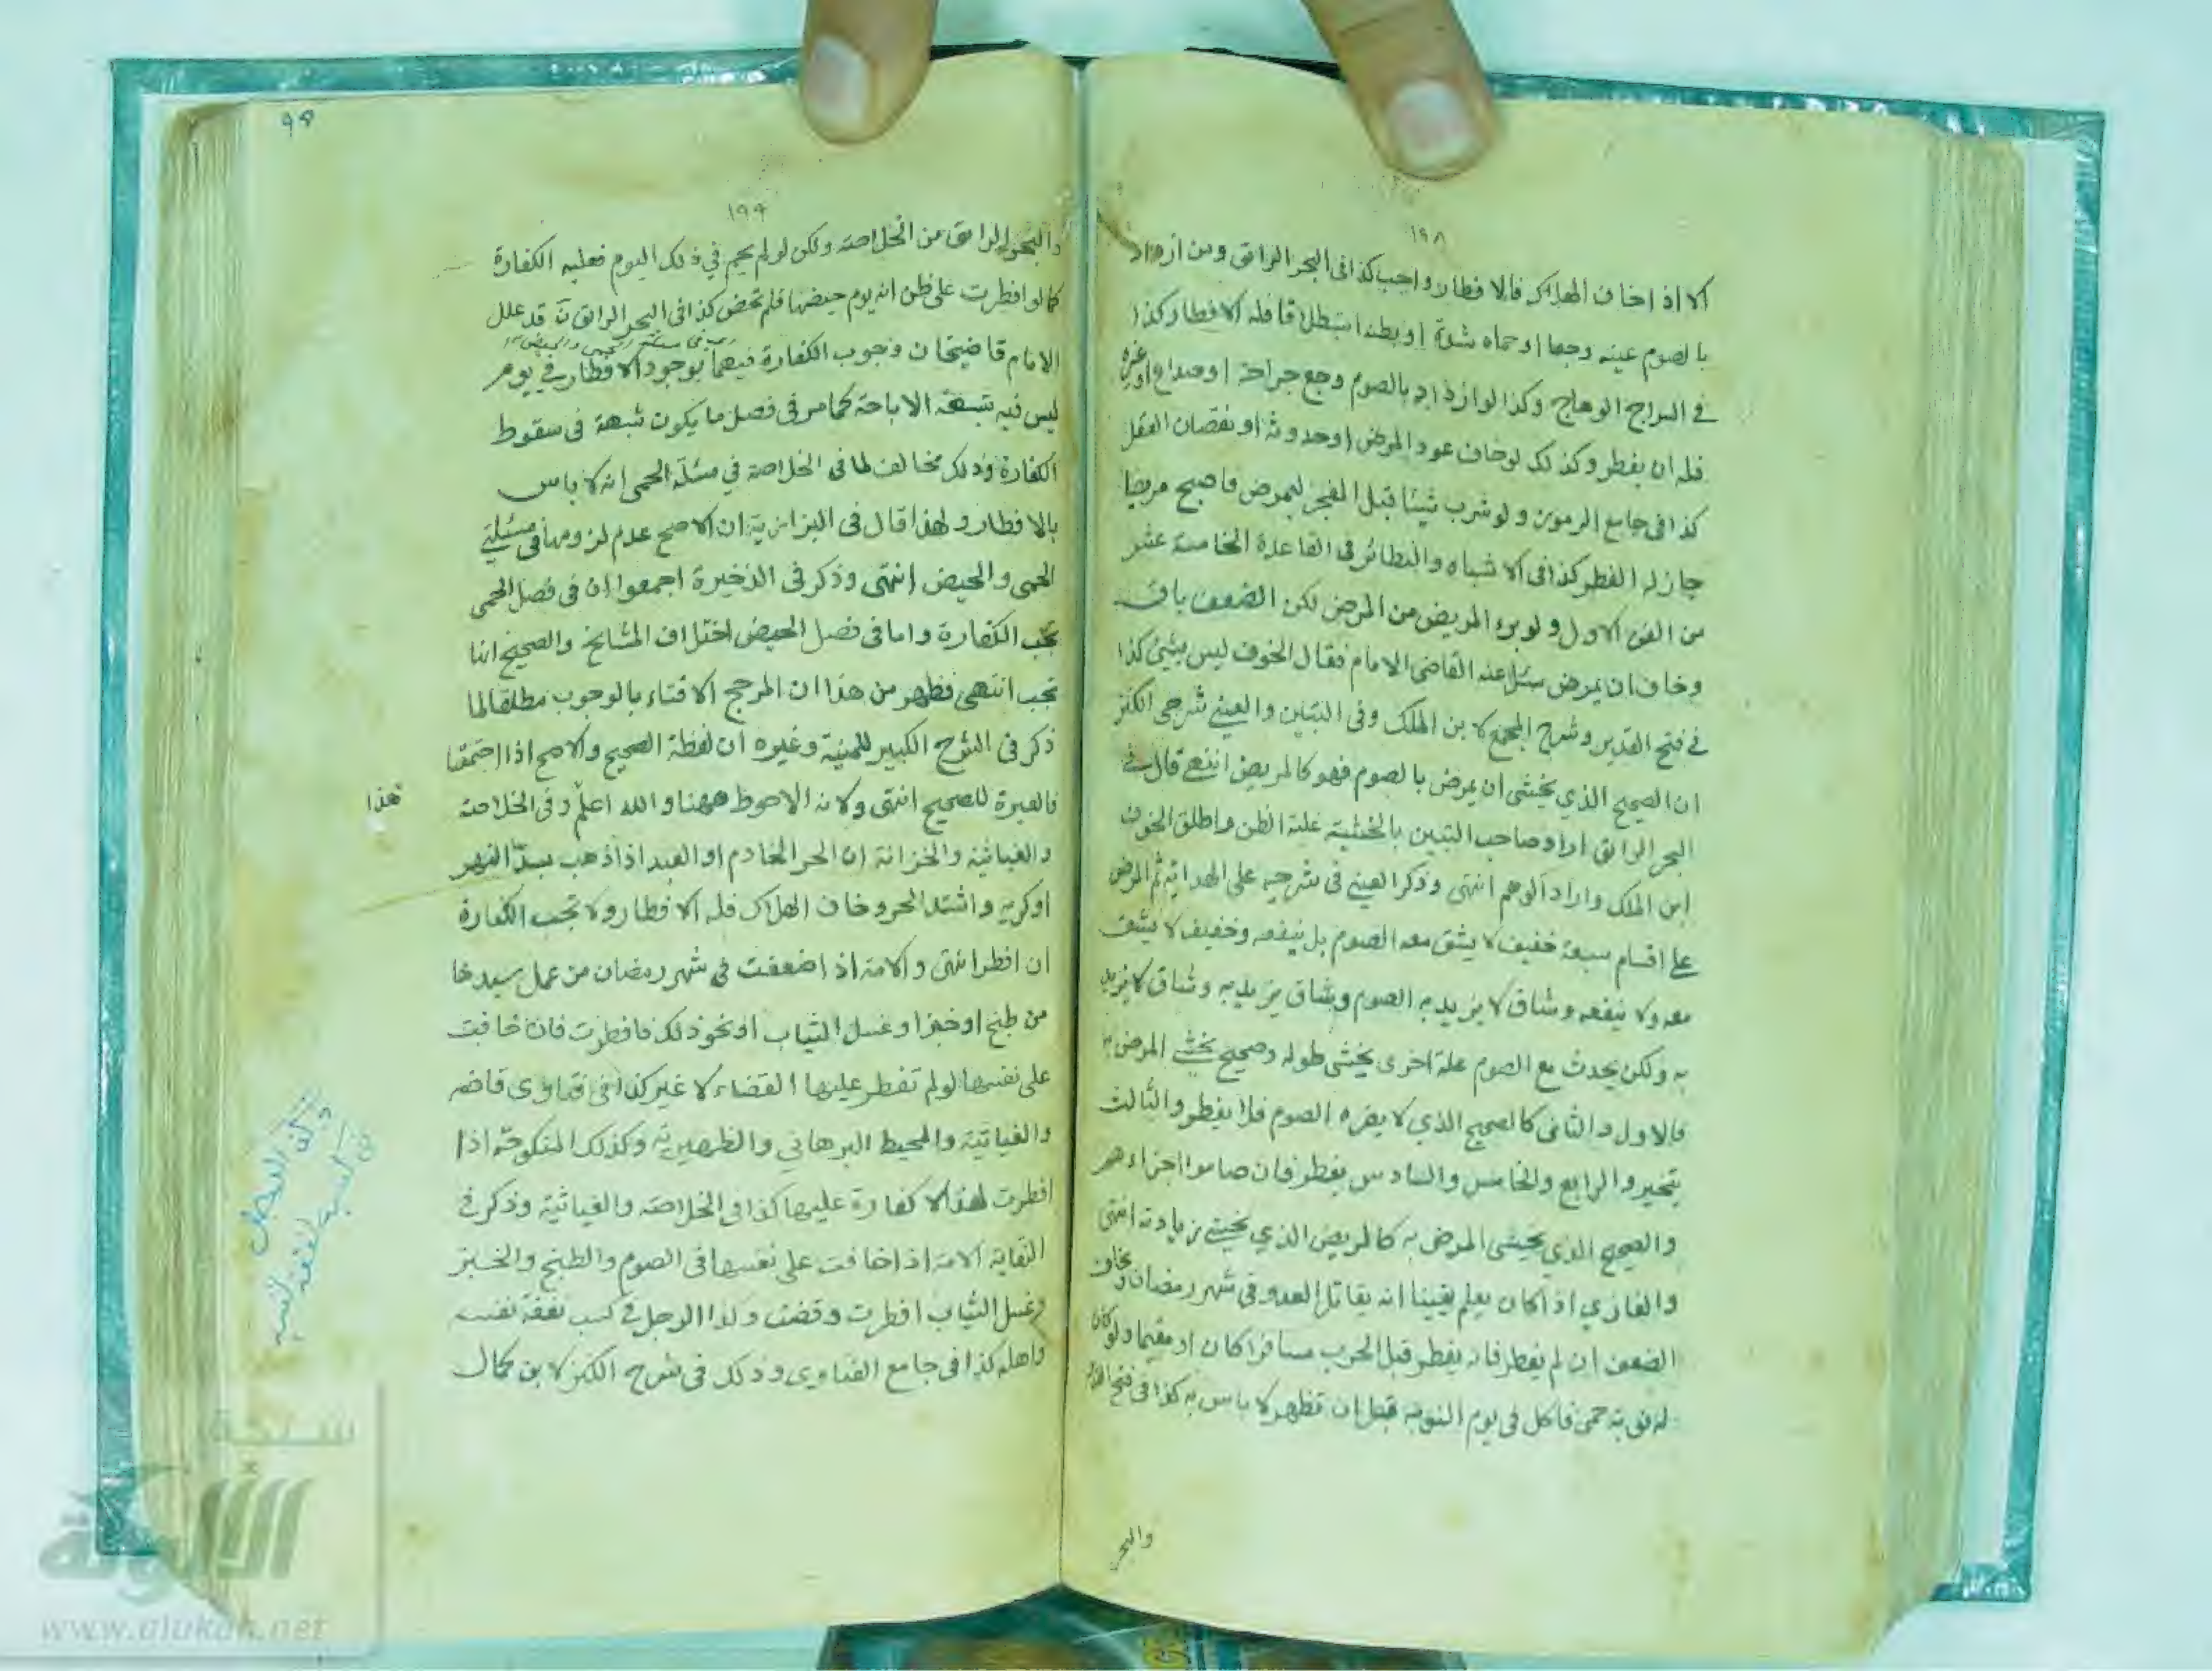 ١٩٨
الا اذا خاف الهلاك فالافطار واجب كذا فى البحر الرائق ومن ازداد
بالصوم عينه وجعا او حماه شدة او بطنه استطلاقا فله الافطار كذا
في السراج الوهاج وكذا لو ازداد بالصوم وجع جراحة او صداع او غيره
فله ان يفطر وكذلك لو خاف عود المرض او حدوثه او نقصان العقل
كذا فى جامع الرموز ولو شرب شيئا قبل الفجر ليمرض فاصبح مريضا
جاز له الفطر كذا فى الاشباه والنظائر فى القاعدة الخامسة عشر
من الفن الاول ولو برء المريض من المرض لكن الضعف باق
وخاف ان يمرض سئل عنه القاضى الامام فقال الخوف ليس بشئ كذا
في فتح القدير وشرح المجمع لابن الملك وفى التبيين والعينى شرحى الكنز
ان الصحيح الذي يخشى ان يمرض بالصوم فهو كالمريض انتهى قال في
البحر الرائق اراد صاحب التبيين بالخشية غلبة الظن واطلق الخوف
ابن الملك واراد الوهم انتهى وذكر العينى فى شرحه على الهداية ثم المرض
على اقسام سبعة خفيف لا يشق معه الصوم بل ينفعه وخفيف لا يشق
معه ولا ينفعه وشاق لا يزيد به الصوم وشاق يزيد به وشاق لا يزيد
به ولكن يحدث مع الصوم علة اخرى يخشى طوله وصحيح يخشى المرض به
فالاول والثانى كالصحيح الذي لا يضره الصوم فلا يفطر والثالث
يتخير والرابع والخامس والسادس يفطر فان صاموا اجزاءهم
والصحيح الذي يخشى المرض به كالمريض الذي يخشى زيادته انتهى
والغازي اذا كان يعلم يقينا انه يقاتل العدو فى شهر رمضان ويخاف
الضعف ان لم يفطر فانه يفطر قبل الحرب مسافرا كان او مقيما ولو كان
له نوبة حمى فاكل فى يوم النوبة قبل ان تظهر لا باس به كذا فى فتح القدير
والبحر
٩٥
١٩٩
والبحر الرائق من الخلاصة ولكن لو لم يحم في ذلك اليوم فعليه الكفارة
كما لو افطرت على ظن انه يوم حيضها فلم تحض كذا فى البحر الرائق قد علل
الامام قاضيخان وجوب الكفارة فيهما بوجود الافطار في يوم
ليس فيه شبهة الاباحة كما مر فى فصل ما يكون شبهة فى سقوط
الكفارة وذلك مخالف لما فى الخلاصة في مسئلة الحمى انه لا باس
بالافطار ولهذا قال فى البزازية ان الاصح عدم لزومها فى مسئلتي
الحمى والحيض انتهى وذكر فى الذخيرة اجمعوا ان فى فصل الحمى
تجب الكفارة واما فى فصل الحيض اختلاف المشايخ والصحيح انها
تجب انتهى فظهر من هذا ان المرجح الافتاء بالوجوب مطلقا لما
ذكر فى الشرح الكبير للمنية وغيره ان لفظة الصحيح والاصح اذا اجتمعتا
فالعبرة للصحيح انتهى ولانه الاحوط ههنا والله اعلم وفى الخلاصة
هذا
والغياثية والخزانة ان الحر الخادم او العبد اذا ذهب لسد النهر
او كريه واشتد الحر وخاف الهلاك فله الافطار ولا تجب الكفارة
ان افطر انتهى والامة اذا ضعفت في شهر رمضان من عمل سيدها
من طبخ او خبز او غسل الثياب او نحو ذلك فافطرت فان خافت
على نفسها لو لم تفطر عليها القضاء لا غير كذا فى فتاوى قاضي
والغياثية والمحيط البرهاني والظهيرية وكذلك المنكوحة اذا
افطرت لهذا لا كفارة عليها كذا فى الخلاصة والغياثية وذكر في
النقاية الامة اذا خافت على نفسها فى الصوم والطبخ والخبز
وغسل الثياب افطرت وقضت وكذا الرجل في كسب نفقة نفسه
واهله كذا فى جامع الفتاوى وذلك فى شرح الكنز لابن كمال
شبكة
الألوكة
www.alukah.net